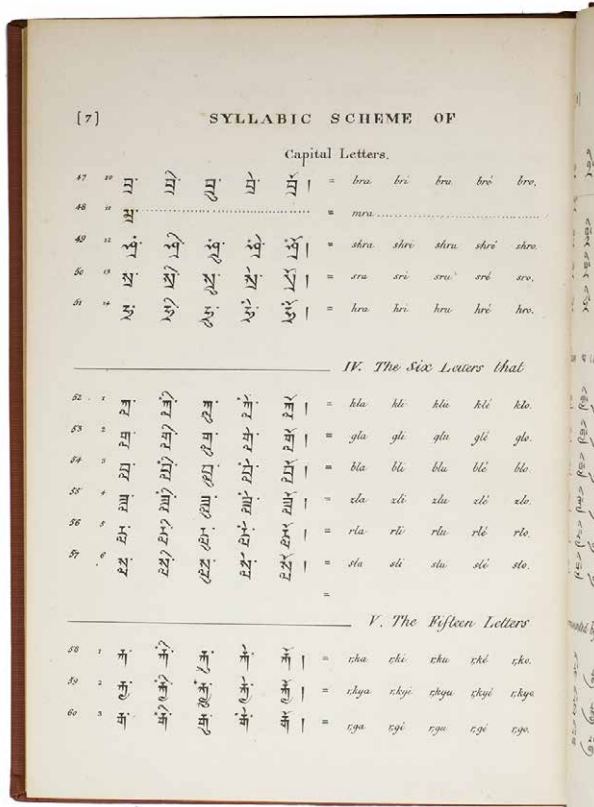 [7] SYLLABIC SCHEME OF
Capital Letters.
47 10 བྲ་ བྲི་ བྲུ་ བྲེ་ བྲོ། = bra bri bru bré bro.
48 11 མྲ་ = mra
49 12 ཤྲ་ ཤྲི་ ཤྲུ་ ཤྲེ་ ཤྲོ། = shra shri shru shré shro.
50 13 སྲ་ སྲི་ སྲུ་ སྲེ་ སྲོ། = sra sri sru sré sro.
51 14 ཧྲ་ ཧྲི་ ཧྲུ་ ཧྲེ་ ཧྲོ། = hra hri hru hré hro.
IV. The Six Letters that
52 1 ཀླ་ ཀླི་ ཀླུ་ ཀླེ་ ཀློ། = kla kli klu klé klo.
53 2 གླ་ གླི་ གླུ་ གླེ་ གློ། = gla gli glu glé glo.
54 3 བླ་ བླི་ བླུ་ བླེ་ བློ། = bla bli blu blé blo.
55 4 ཟླ་ ཟླི་ ཟླུ་ ཟླེ་ ཟློ། = zla zli zlu zlé zlo.
56 5 རླ་ རླི་ རླུ་ རླེ་ རློ། = rla rli rlu rlé rlo.
57 6 སླ་ སླི་ སླུ་ སླེ་ སློ། = sla sli slu slé slo.
=
V. The Fifteen Letters
58 1 རྐ་ རྐི་ རྐུ་ རྐེ་ རྐོ། = r,ka r,ki r,ku r,ké r,ko.
59 2 རྐྱ་ རྐྱི་ རྐྱུ་ རྐྱེ་ རྐྱོ། = r,kya r,kyi r,kyu r,kyé r,kyo.
60 3 རྒ་ རྒི་ རྒུ་ རྒེ་ རྒོ། = r,ga r,gi r,gu r,gé r,go.